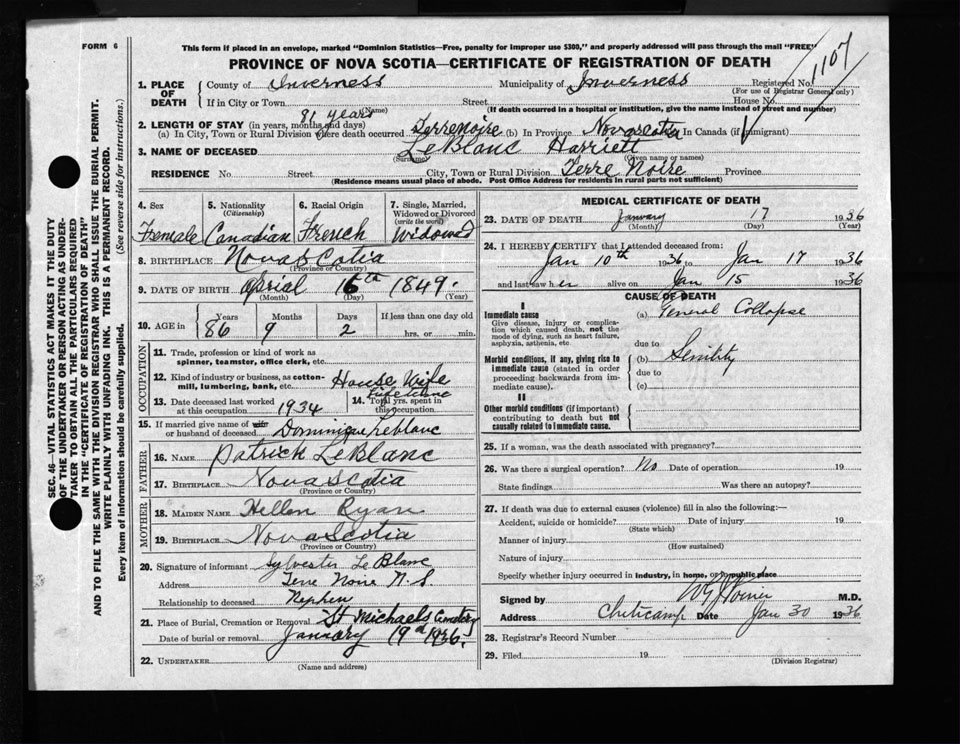 FORM 6
This form if placed in an envelope, marked "Dominion Statistics—Free, penalty for improper use $300," and properly addressed will pass through the mail "FREE"
PROVINCE OF NOVA SCOTIA—CERTIFICATE OF REGISTRATION OF DEATH
1107
1. PLACE OF DEATH
County of Inverness Municipality of Inverness Registered No.
(For use of Registrar General only)
If in City or Town Street House No.
(Name) (If death occurred in a hospital or institution, give the name instead of street and number)
2. LENGTH OF STAY (in years, months and days) 81 years
(a) In City, Town or Rural Division where death occurred Terrenoire (b) In Province Nova scotia In Canada (if immigrant)
3. NAME OF DECEASED LeBlanc Harriett
(Surname) (Given name or names)
RESIDENCE No. Street City, Town or Rural Division Terre Noire Province
(Residence means usual place of abode. Post Office Address for residents in rural parts not sufficient)
4. Sex 5. Nationality (Citizenship) 6. Racial Origin 7. Single, Married, Widowed or Divorced (write the word)
Female Canadian French Widowed
8. BIRTHPLACE Nova Scotia
(Province or Country)
9. DATE OF BIRTH Aprial 16th 1849.
(Month) (Day) (Year)
10. AGE in Years Months Days If less than one day old
86 9 2 hrs. or min.
OCCUPATION
11. Trade, profession or kind of work as spinner, teamster, office clerk, etc.
12. Kind of industry or business, as cotton-mill, lumbering, bank, etc. House Wife
13. Date deceased last worked at this occupation 1934 14. Total yrs. spent in this occupation Lifetime
15. If married give name of wife or husband of deceased Dominique Leblanc
FATHER
16. NAME Patrick LeBlanc
17. BIRTHPLACE Nova Scotia
(Province or Country)
MOTHER
18. MAIDEN NAME Hellen Ryan
19. BIRTHPLACE Nova Scotia
(Province or Country)
20. Signature of informant Sylvester Le Blanc
Address Terre Noire N.S.
Relationship to deceased Nephew
21. Place of Burial, Cremation or Removal St Michaels Cemetery
Date of burial or removal January 19th 1936.
22. UNDERTAKER
(Name and address)
MEDICAL CERTIFICATE OF DEATH
23. DATE OF DEATH January 17 1936
(Month) (Day) (Year)
24. I HEREBY CERTIFY that I attended deceased from:
Jan 10th 1936 to Jan 17 1936
and last saw her alive on Jan 15 1936
CAUSE OF DEATH
I
Immediate cause (a) General Collapse
Give disease, injury or complication which caused death, not the mode of dying, such as heart failure, asphyxia, asthenia, etc.
due to
Morbid conditions, if any, giving rise to immediate cause (stated in order proceeding backwards from immediate cause).
(b) Senility
due to
(c)
II
Other morbid conditions (if important) contributing to death but not causally related to immediate cause.
25. If a woman, was the death associated with pregnancy?
26. Was there a surgical operation? No Date of operation 19
State findings Was there an autopsy?
27. If death was due to external causes (violence) fill in also the following:—
Accident, suicide or homicide? Date of injury 19
(State which)
Manner of injury
(How sustained)
Nature of injury
Specify whether injury occurred in industry, in home, or in public place
Signed by M.D.
Address Cheticamp Date Jan 30 1936
28. Registrar's Record Number
29. Filed 19
(Division Registrar)
SEC. 46—VITAL STATISTICS ACT MAKES IT THE DUTY
OF THE UNDERTAKER OR PERSON ACTING AS UNDER-
TAKER TO OBTAIN ALL THE PARTICULARS REQUIRED
IN THE "CERTIFICATE OF REGISTRATION OF DEATH"
AND TO FILE THE SAME WITH THE DIVISION REGISTRAR WHO SHALL ISSUE THE BURIAL PERMIT.
WRITE PLAINLY WITH UNFADING INK. THIS IS A PERMANENT RECORD.
Every item of information should be carefully supplied. (See reverse side for instructions.)